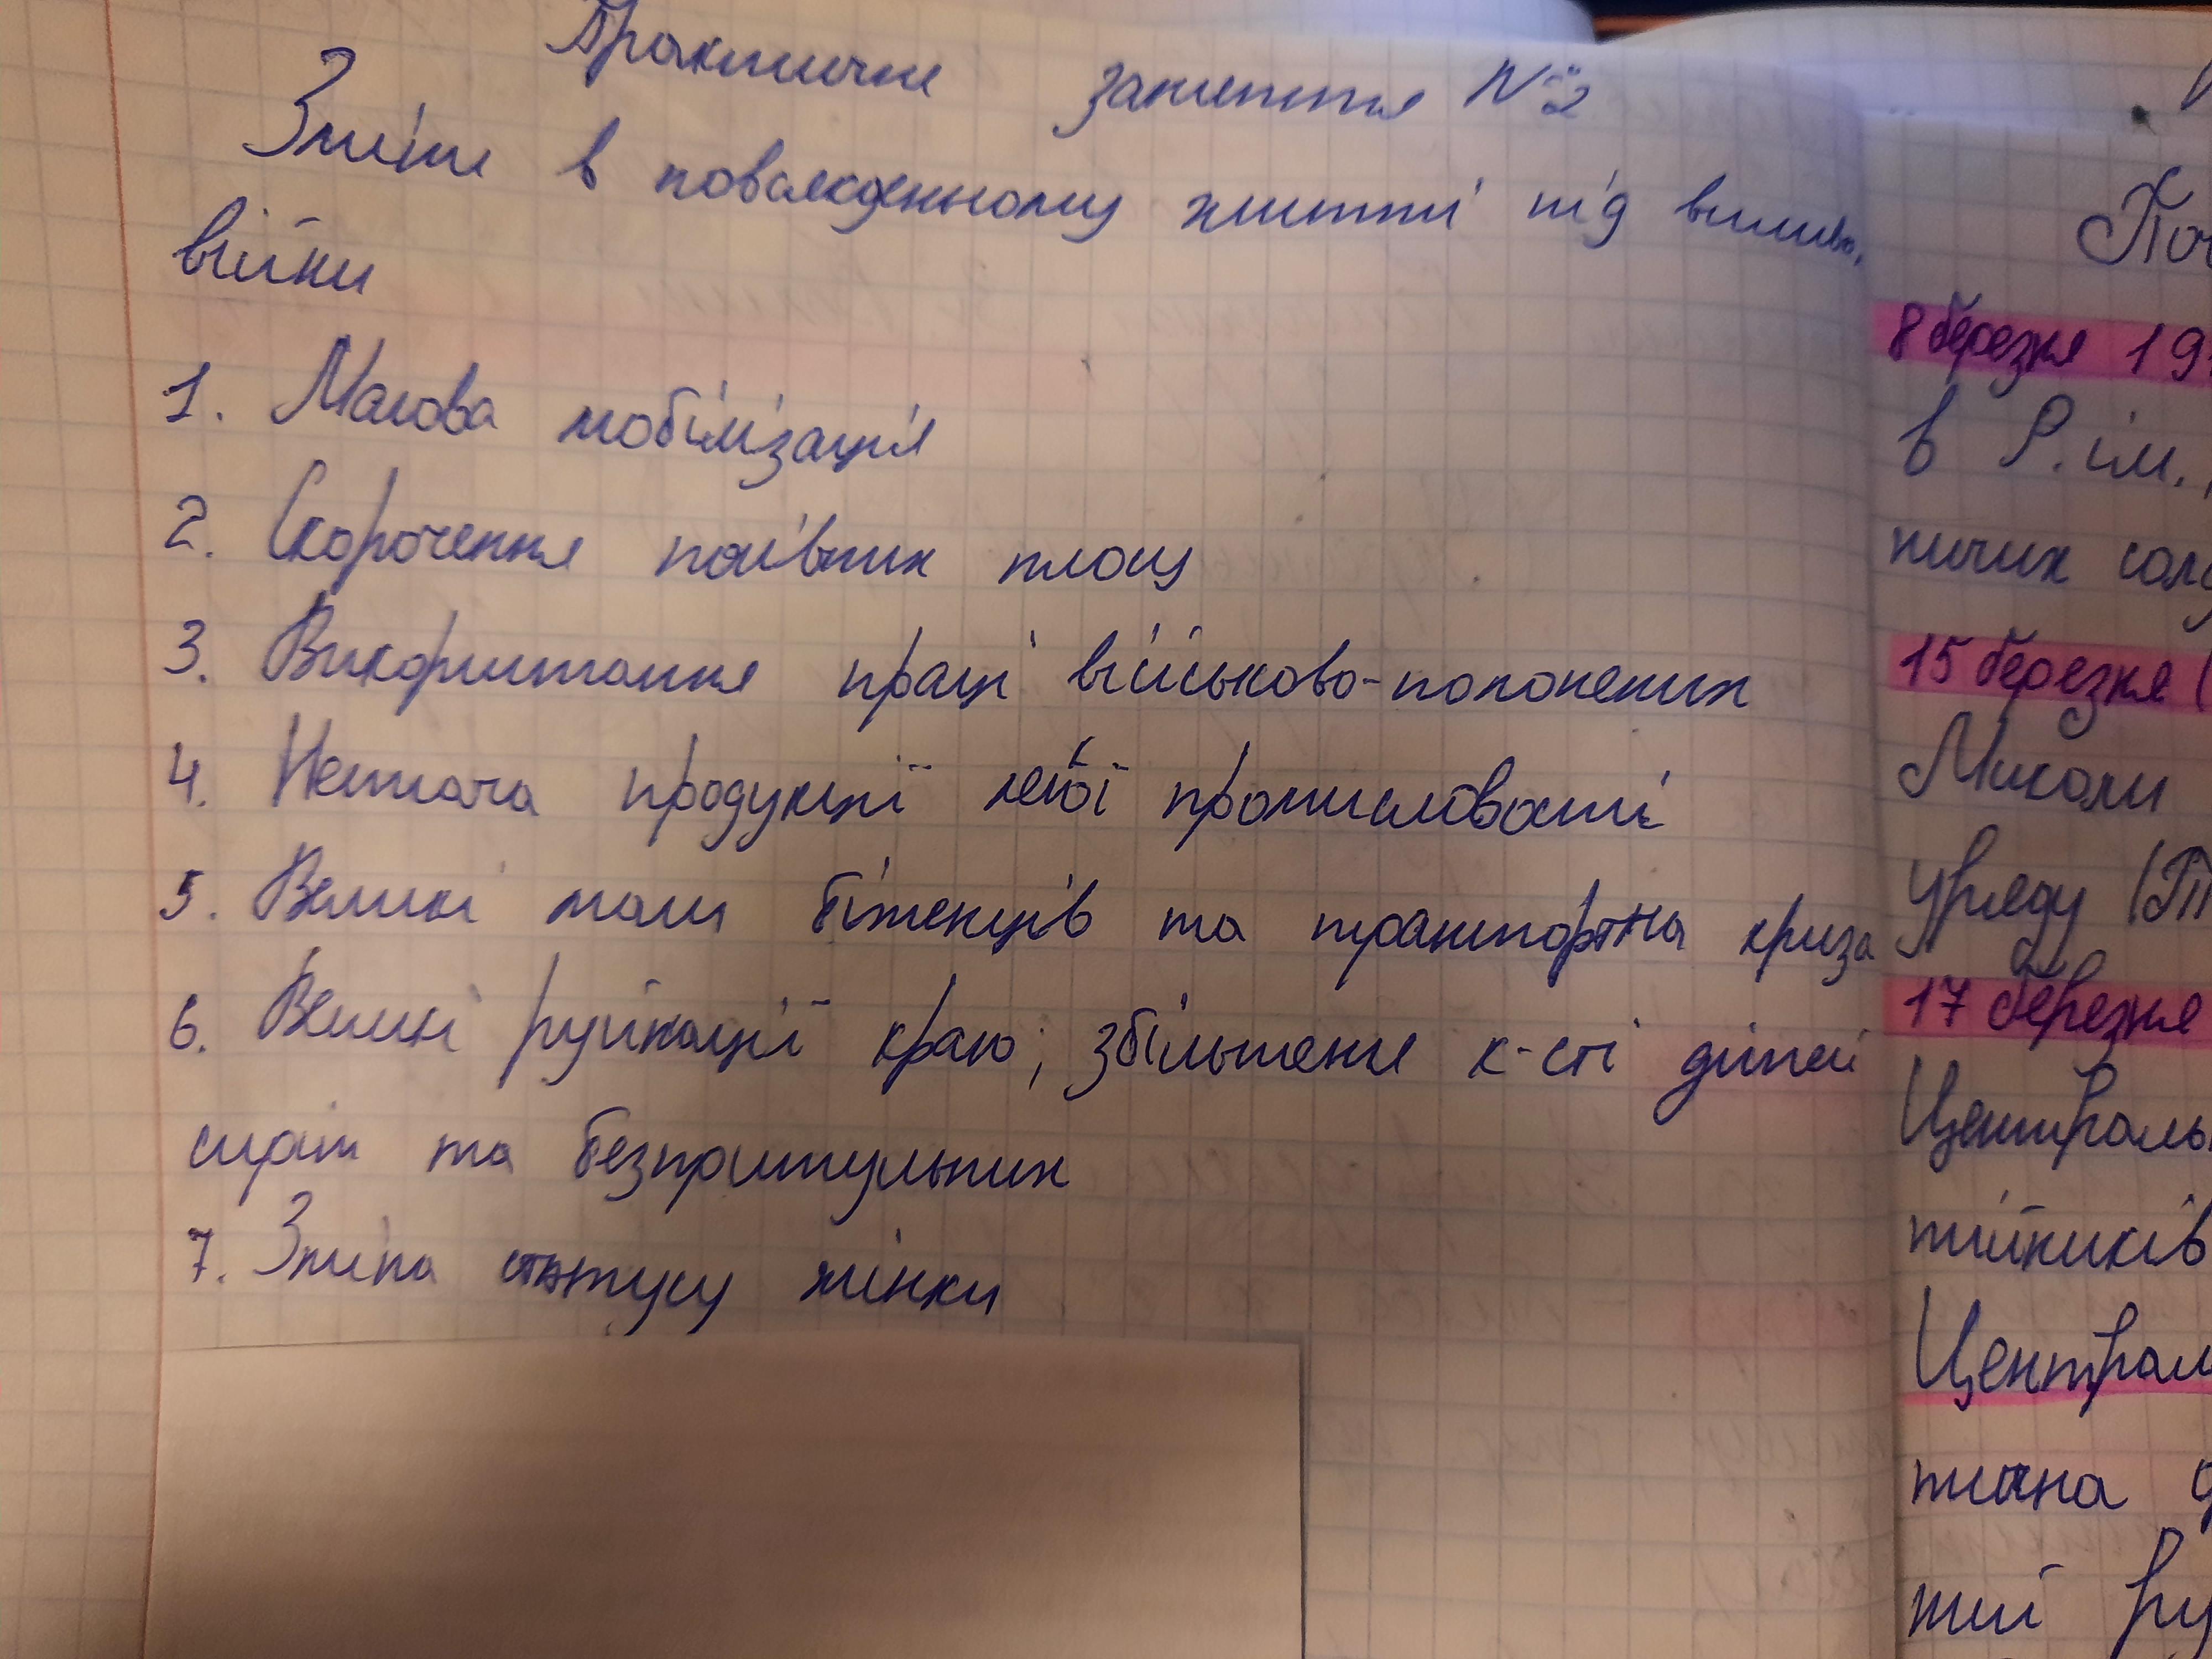 Практичне заняття №2
Зміни в повсякденному житті під впливо
війни
1. Масова мобілізація
2. Скорочення посівних площ
3. Використання праці військово-полонених
4. Нестача продукції легкої промисловості
5. Великі маси біженців та транспортна криза
6. Великі руйнації краю; збільшення к-сті дітей
сиріт та безпритульних
7. Зміна статусу жінки
Поч
8 березня 19
в Р. ім.,
ничих солд
15 березня (
Миколи
уряду (Т
17 березня
Централь
тійників
Централ
тична
ний ру